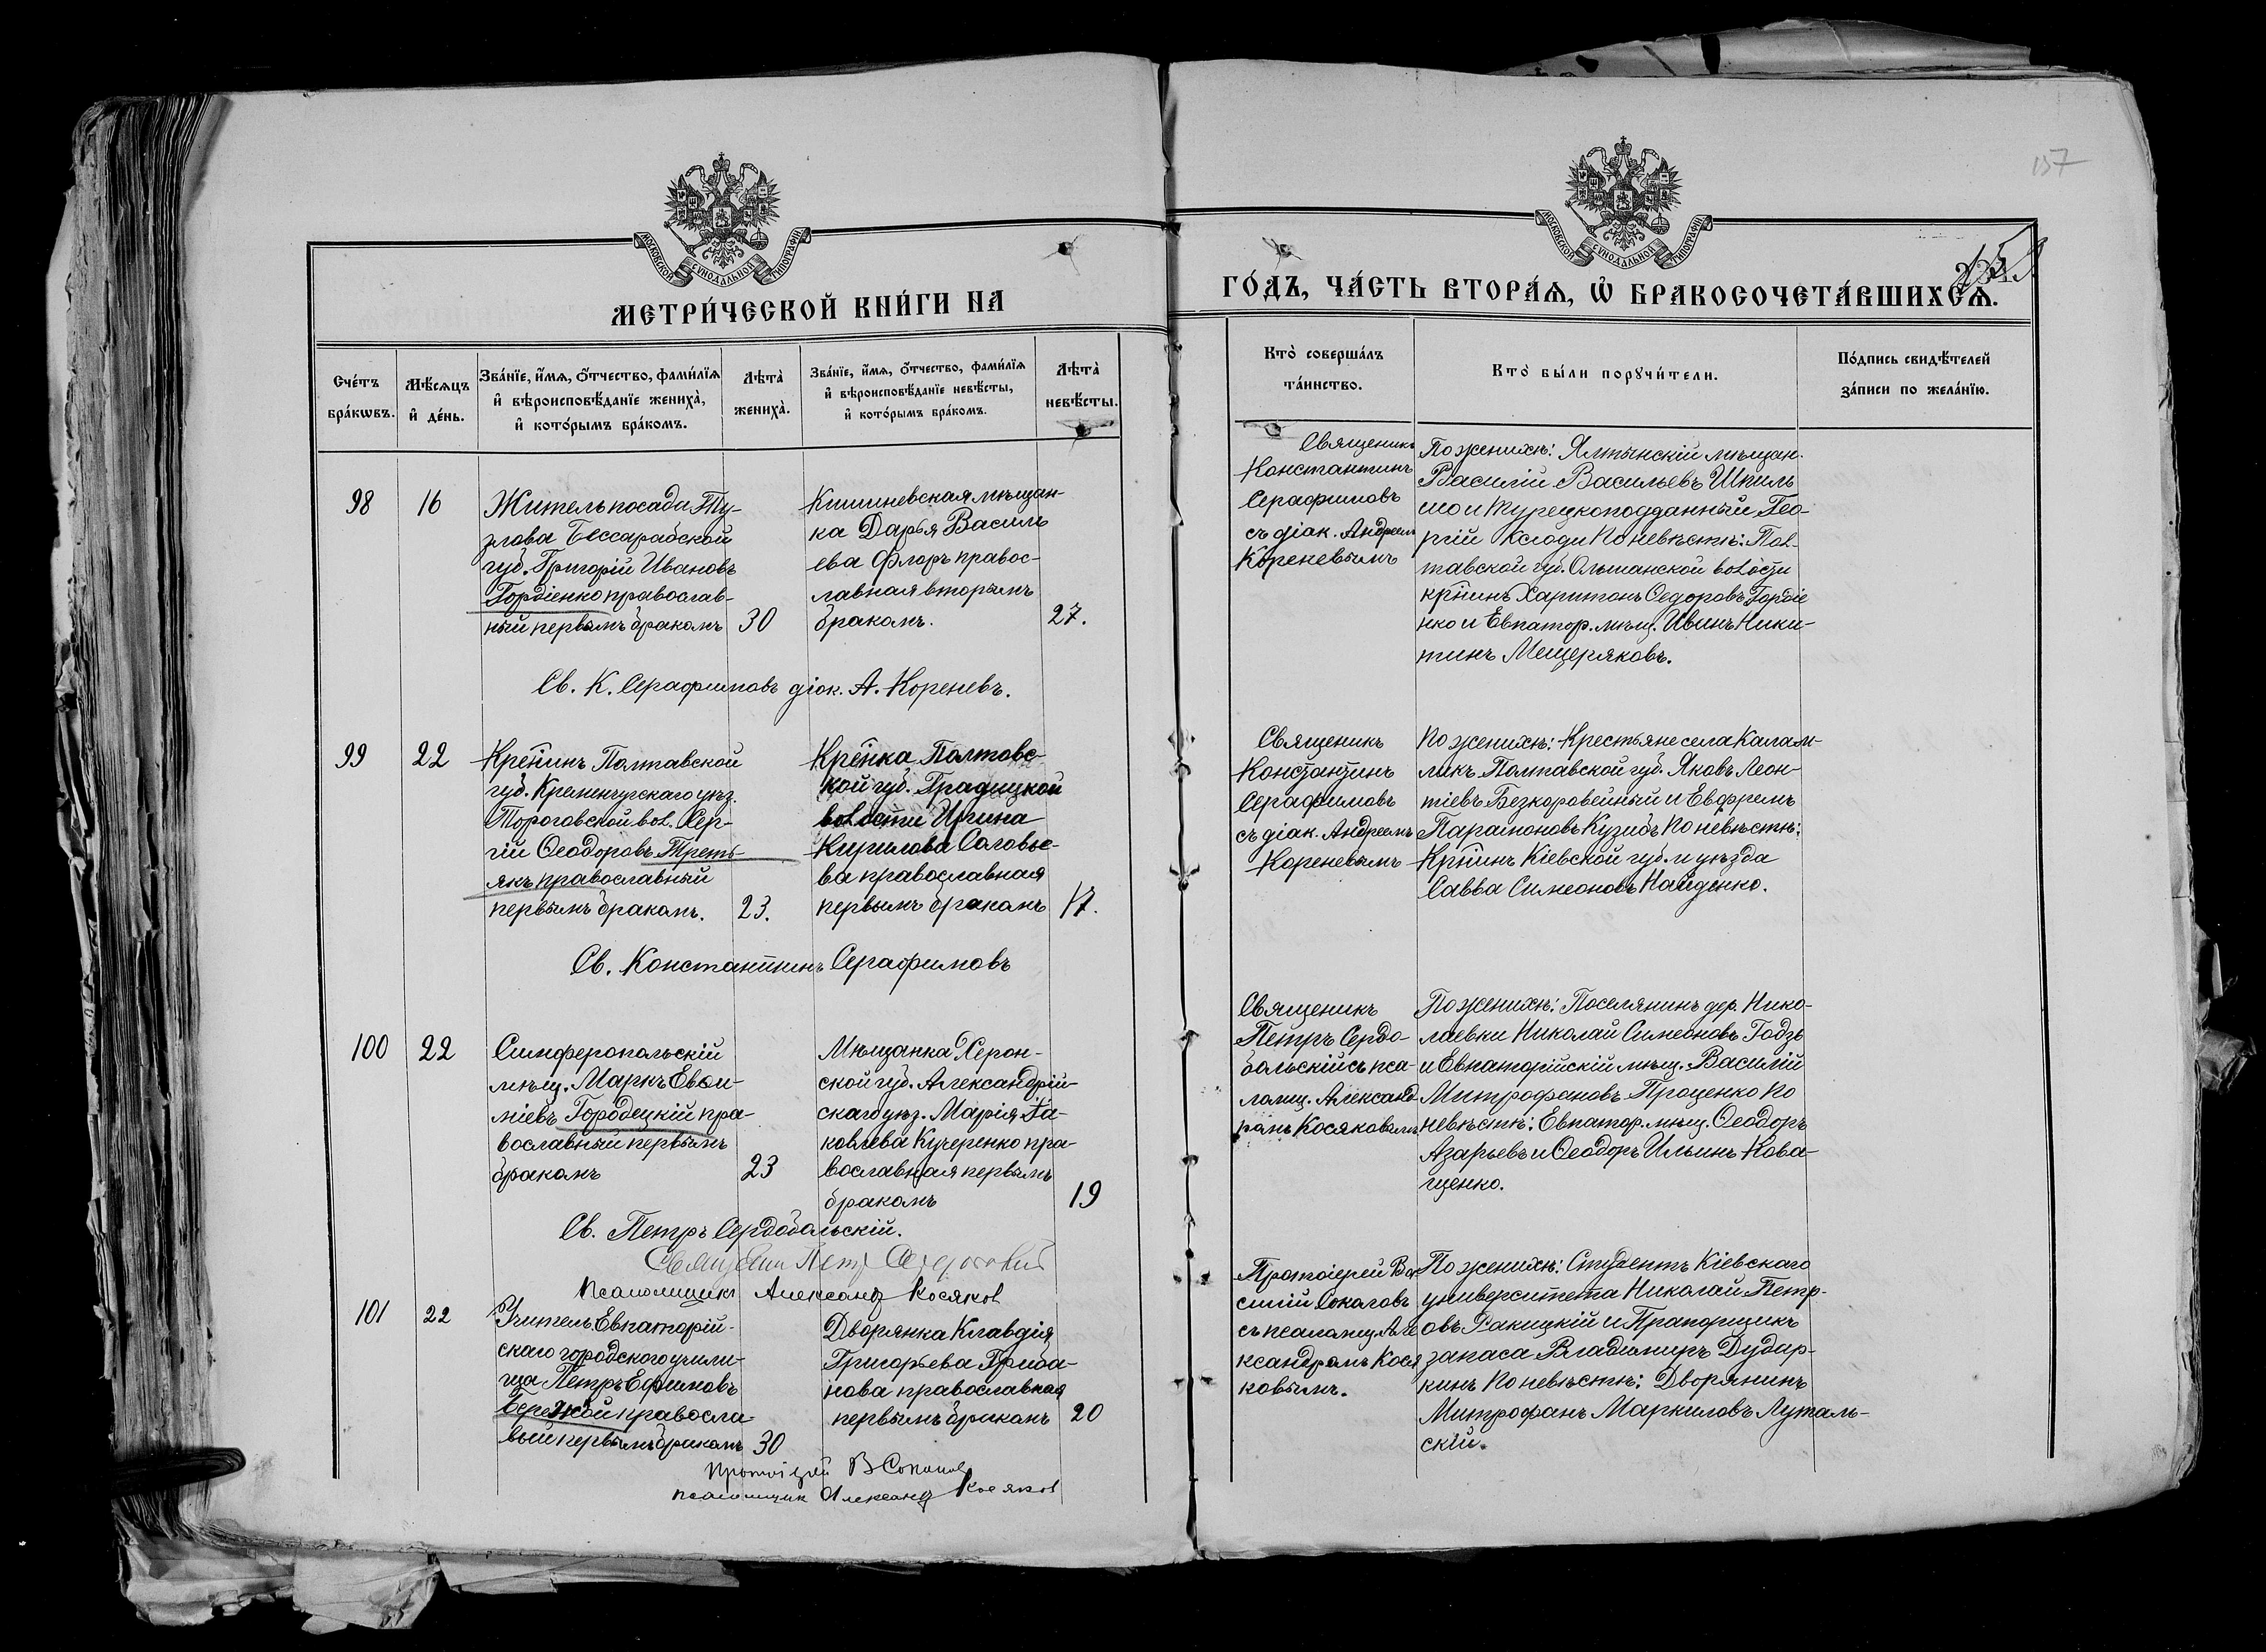 157
МОСКОВСКОЙ СѴНОДАЛЬНОЙ ТИПОГРАФІИ
МОСКОВСКОЙ СѴНОДАЛЬНОЙ ТИПОГРАФІИ
МЕТРИ́ЧЕСКОЙ КНИ́ГИ НА
ГО́ДЪ, ЧА́СТЬ ВТОРА́Ѧ, Ѡ҆ БРАКОСОЧЕТА́ВШИХСѦ.
Сче́тъ бра́кѡвъ.
Мѣ́сѧцъ и҆ де́нь.
Зва́нїе, и҆́мѧ, о҆́тчество, фами́лїѧ и҆ вѣроисповѣ́данїе жениха̀, и҆ кото́рымъ бра́комъ.
Лѣта̀ жениха̀.
Зва́нїе, и҆́мѧ, о҆́тчество, фами́лїѧ и҆ вѣроисповѣ́данїе невѣ́сты, и҆ кото́рымъ бра́комъ.
Лѣта̀ невѣ́сты.
Кто̀ соверша́лъ та́инство.
Кто̀ бы́ли порꙋчи́тели.
По́дпись свидѣ́телей за́писи по жела́нїю.
98
16
Житель посада Ту-
злова Бессарабской
губ. Григорій Ивановъ
Гордіенко православ-
ный первымъ бракомъ
30
Кишиневская мѣщан-
ка Дарья Василь
ева Флоръ правос-
лавная вторымъ
бракомъ.
27.
Священикъ
Константинъ
Серафимовъ
съ діак. Андреем
Кореневымъ
По женихѣ: Ялтынскій мѣщан.
Василій Васильевъ Шпиль
ио и турецкоподданный Гео-
ргій Ксіоди По невѣстѣ: Пол-
тавской губ. Ольшанской волости
крнинъ Харитонъ Ѳедоровъ Гордіе
нко и Евпатор. мѣщ. Ивинъ Ники-
тинъ Мещеряковъ.
Св. К. Серафимовъ діак. А. Кореневъ.
99
22
Кренинъ Полтавской
губ. Кременчугскаго уѣз.
Тороговской вол. Сер-
гій Ѳеодоровъ Треть-
якъ православный
первымъ бракомъ.
23.
Кренка Полтовс-
кой губ. Градицкой
волости Ирина
Кирилова Соловье-
ва православная
первымъ бракомъ
17.
Священикъ
Константинъ
Серафимовъ
съ діак. Андреемъ
Кореневымъ
По женихѣ: Крестьяне села Калам-
ликъ Полтавской губ. Яковъ Леон-
тіевъ Безкоровейный и Евфремъ
Парамоновъ Кузубъ По невѣстѣ:
Крнинъ Кіевской губ. и уѣзда
Савва Симеоновъ Найденко.
Св. Константинъ Серафимовъ
100
22
Симферопольскій
мѣщ. Маркъ Евѳи-
міевъ Городецкій пра-
вославный первымъ
бракомъ
23
Мѣщанка Херон-
ской губ. Александрій-
скаго уѣз. Марія Iа-
ковлева Кучеренко пра-
вославная первымъ
бракомъ
19
Священикъ
Петръ Сердо-
больскій съ пса-
ломщ. Александ
ромъ Косяковымъ
По женихѣ: Поселянинъ дер. Нико-
лаевки Николай Симеоновъ Годзь
и Евпаторійскій мѣщ. Василій
Митрофановъ Проценко По
невѣстѣ: Евпатор. мѣщ. Ѳеодоръ
Азарьевъ и Ѳеодоръ Ильинъ Кова-
щенко.
Св. Петръ Сердобольскій.
Псаломщикъ Александ Косяков
101
22
Учитель Евпаторій-
скаго городского учили-
ща Петръ Ефимовъ
Бережой правосла
вый первымъ бракомъ
30
Дворянка Клавдія
Григорьева Гриба-
нова православная
первымъ бракомъ
20
Протоіерей Ва
силій Соколовъ
съ псаломщ. Але
ксандромъ Кося
ковымъ.
По женихѣ: Студентъ Кіевскаго
университета Николай Петр-
овъ Ракицкій и Прапорщикъ
запаса Владимиръ Дудыр-
кинъ По невѣстѣ: Дворянинъ
Митрофанъ Маркиловъ Луталь-
скій.
Протоіерей В Соколов
псаломщик Александ Косяков